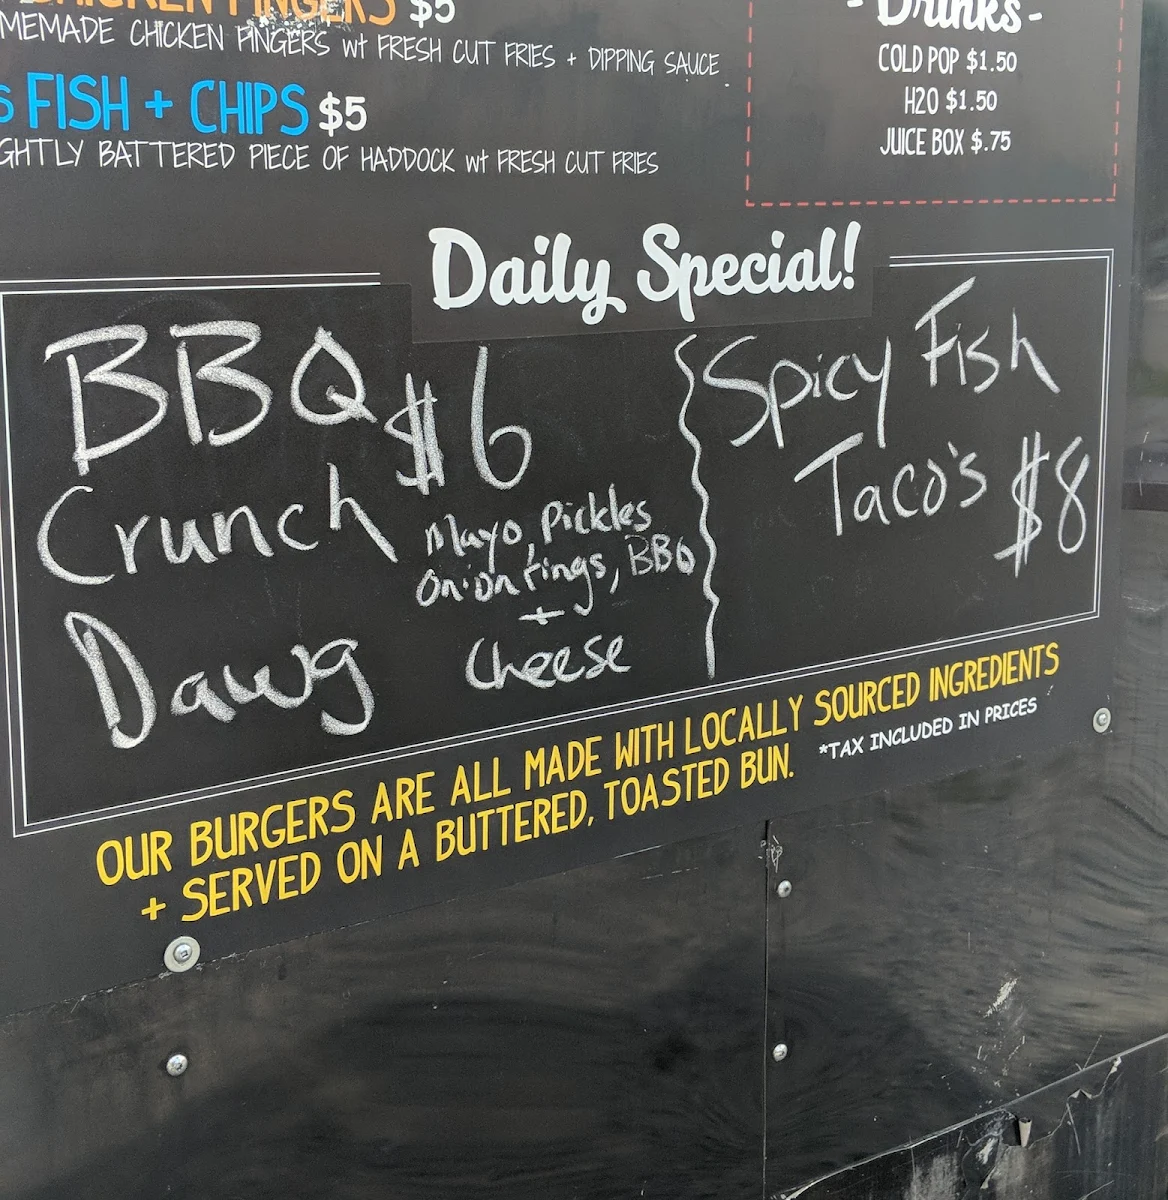 CHICKEN FINGERS $5
MEMADE CHICKEN FINGERS wt FRESH CUT FRIES + DIPPING SAUCE
FISH + CHIPS $5
GHTLY BATTERED PIECE OF HADDOCK wt FRESH CUT FRIES
- Drinks -
COLD POP $1.50
H2O $1.50
JUICE BOX $.75
Daily Special!
BBQ $6
Crunch
Dawg
Mayo, Pickles
Onion rings, BBQ
+
Cheese
Spicy Fish
Taco's $8
OUR BURGERS ARE ALL MADE WITH LOCALLY SOURCED INGREDIENTS
+ SERVED ON A BUTTERED, TOASTED BUN.
*TAX INCLUDED IN PRICES